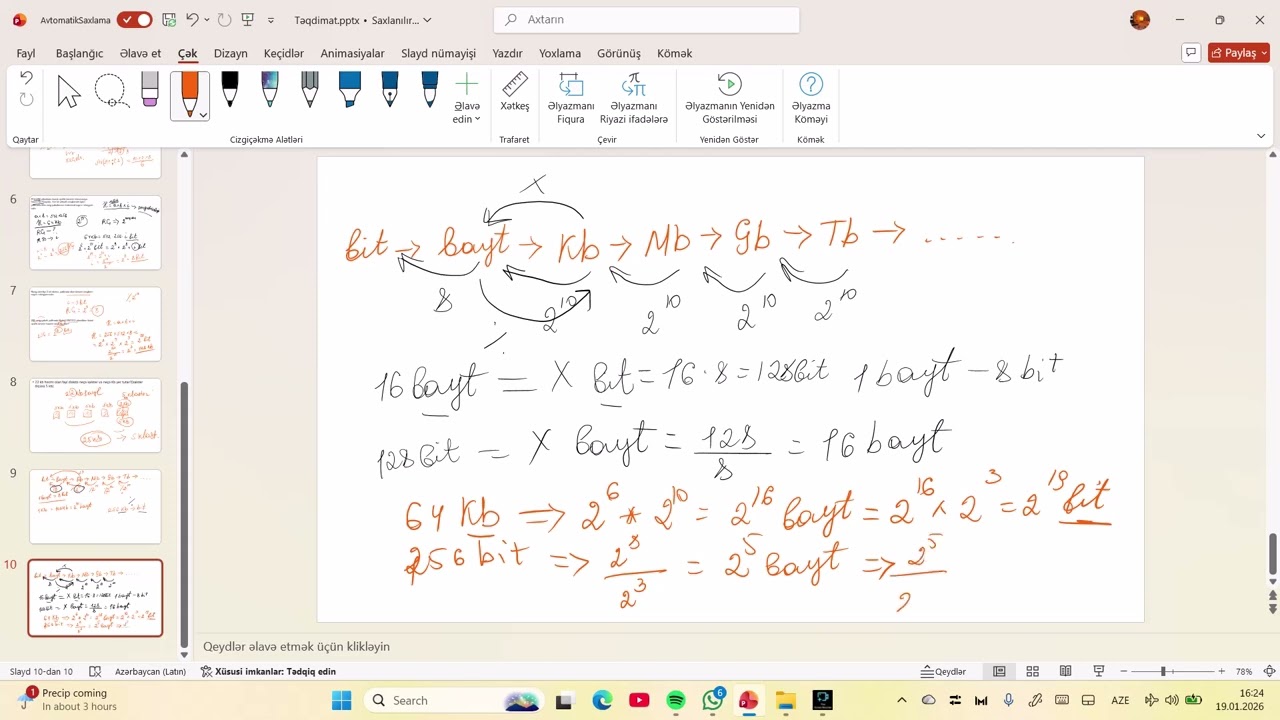 AvtomatikSaxlama
Təqdimat.pptx • Saxlanılır...
Axtarın
Fayl Başlanğıc Əlavə et Çək Dizayn Keçidlər Animasiyalar Slayd nümayişi Yazdır Yoxlama Görünüş Kömək
Paylaş
Əlavə edin
Xətkeş
Əlyazmanı Fiqura
Əlyazmanı Riyazi ifadələrə
Əlyazmanın Yenidən Göstərilməsi
Əlyazma Köməyi
Qaytar
Cizgiçəkmə Alətləri
Trafaret
Çevir
Yenidən Göstər
Kömək
6
7
8
9
10
X
bit → bayt → Kb → Mb → Gb → Tb → ......
8 2^10 2^10 2^10 2^10
:
16 bayt = X bit = 16 · 8 = 128bit 1 bayt – 8 bit
128 bit = X bayt = 128/8 = 16 bayt
64 Kb => 2^6 * 2^10 = 2^16 bayt = 2^16 × 2^3 = 2^19 bit
256 bit => 2^8/2^3 = 2^5 bayt => 2^5/2
Qeydlər əlavə etmək üçün klikləyin
Slayd 10-dan 10 Azərbaycan (Latın) Xüsusi imkanlar: Tədqiq edin
Qeydlər
78%
1
Precip coming
In about 3 hours
Search
6
AZE
16:24
19.01.2026